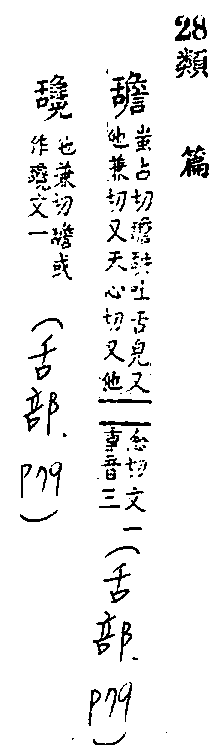 28類篇
蚩占切吐舌皃又
他兼切又天心切又他
念切文一
重音三
(舌部.P79)
也兼切或
作文一
(舌部.P79)